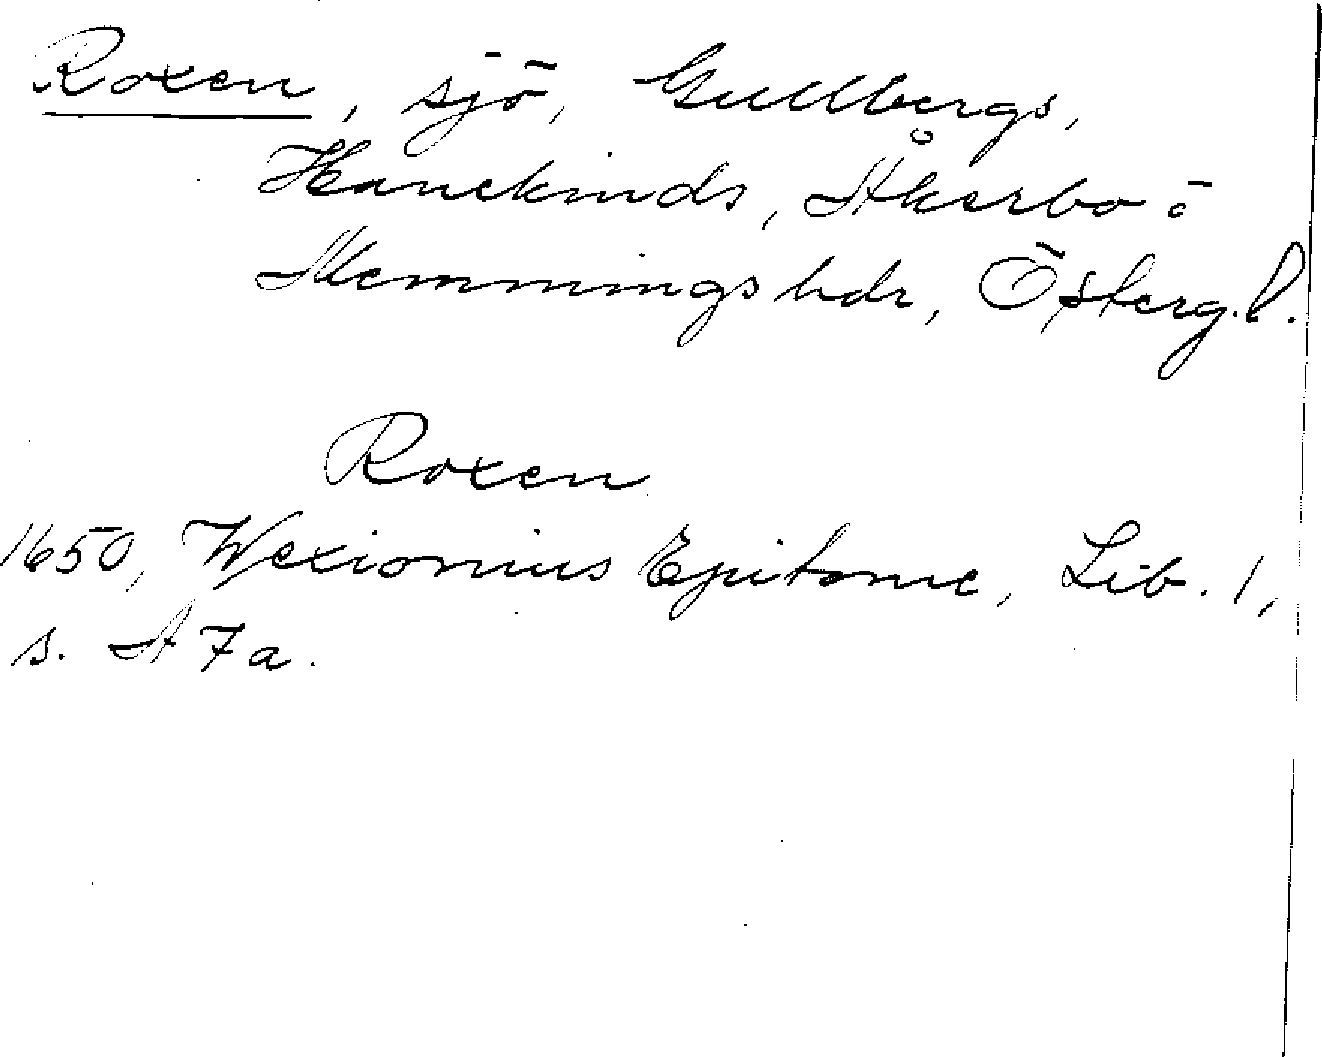 Roxen, sjö, Gullbergs,
Hanekinds, Åkerbo o
Memmings hdr, Österg. l.
Roxen
1650, Wexionius Epitome, Lib. 1,
s. A 7 a.